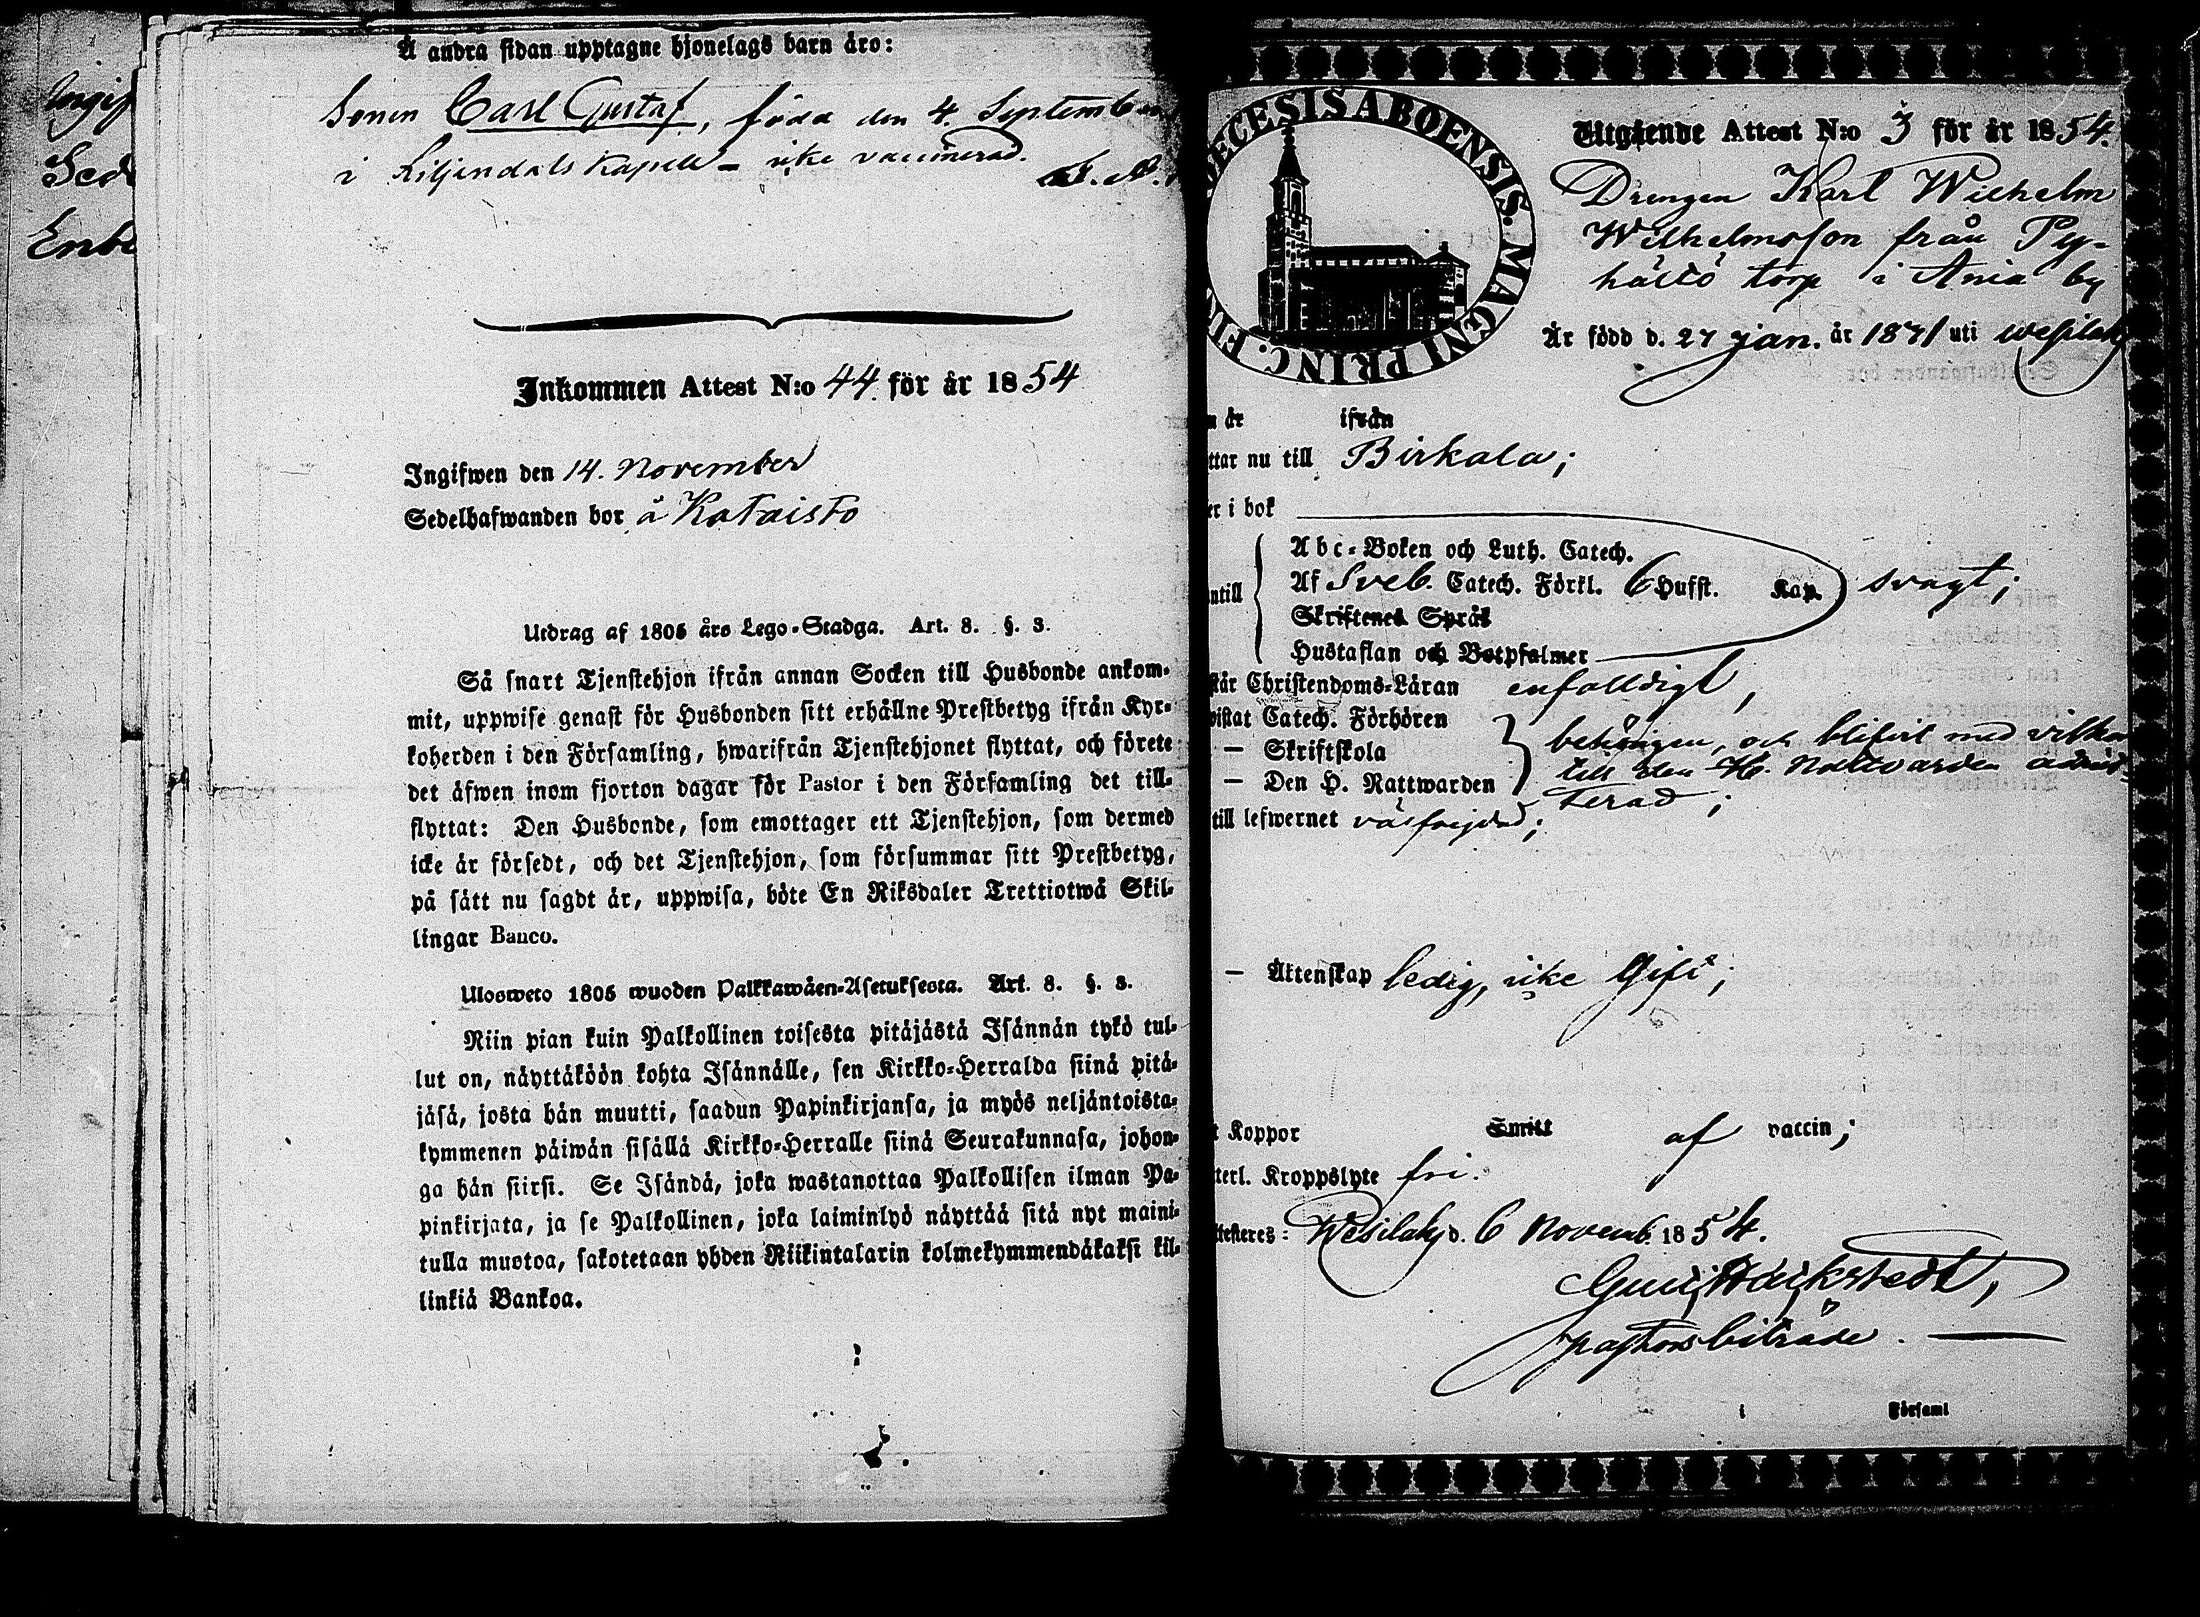 Ingif
Sed
Å andra sidan upptagne hjonelags barn äro:
Sonen Carl Gustaf, född den 4. September
i Liljendals kapell - icke vaccinerad.
Inkommen Attest N:o 44 för år 1854
Ingifwen den 14. November
Sedelhafwanden bor å Kataisto
Utdrag af 1805 års Lego-Stadga. Art. 8. §. 3.
Så snart Tjenstehjon ifrån annan Socken till Husbonde ankom-
mit, uppwise genast för Husbonden sitt erhållne Prestbetyg ifrån Kyr-
koherden i den Församling, hwarifrån Tjenstehjonet flyttat, och förete
det äfwen inom fjorton dagar för Pastor i den Församling det till-
flyttat: Den Husbonde, som emottager ett Tjenstehjon, som dermed
icke är försedt, och det Tjenstehjon, som försummar sitt Prestbetyg,
på sätt nu sagdt är, uppwisa, böte En Riksdaler Trettiotwå Skil-
lingar Banco.
Ulosweto 1805 wuoden Palkkawäen-Asetuksesta. Art. 8. §. 3.
Niin pian kuin Palkollinen toisesta pitäjästä Isännän tykö tul-
lut on, näyttäköön kohta Isännälle, sen Kirkko-Herralda siinä pitä-
jäsä, josta hän muutti, saadun Papinkirjansa, ja myös neljäntoista-
kymmenen päiwän sisällä Kirkko-Herralle siinä Seurakunnasa, johon-
ga hän siirsi. Se Isändä, joka wastanottaa Palkollisen ilman Pa-
pinkirjata, ja se Palkollinen, joka laiminlyö näyttää sitä nyt maini-
tulla muotoa, sakotetaan yhden Riikintalarin kolmekymmendäkaksi kil-
linkiä Bankoa.
ECESIS ABOENSIS. MAGNI PRINC. FI
Utgående Attest N:o 3 för år 1854.
Drengen Karl Wilhelm
Wilhelmsson från Py-
hältö torp i Ania by
Är född d. 27 jan. år 1831 uti Wesilaks
n år ifrån
ttar nu till Birkala;
er i bok
Abc-Boken och Luth. Catech.
ntill Af Sveb. Catech. Förkl. 6 Hufst. Kap. svagt;
Skriftenes Språk
Hustaflan och Botpsalmer
står Christendoms-Läran enfaldigt,
pistat Catech. Förhören
— Skriftskola behörigen, och blifvit med vilkor
— Den H. Nattwarden till den H. Nattvarden admit-
terad;
till lefwernet välfrejdad;
— Äktenskap ledig, icke gift;
t Koppor Smitt af vaccin;
terl. Kroppslyte fri.
ttesteres: Wesilaks d. 6 Novemb. 1854.
pastorsbiträde.
i Församl